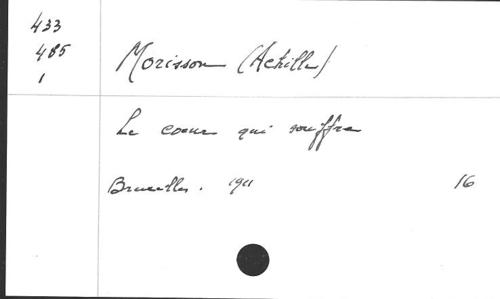 433
485
1
Morisson (Achille)
Le coeur qui souffre
Bruxelles. 1911 16